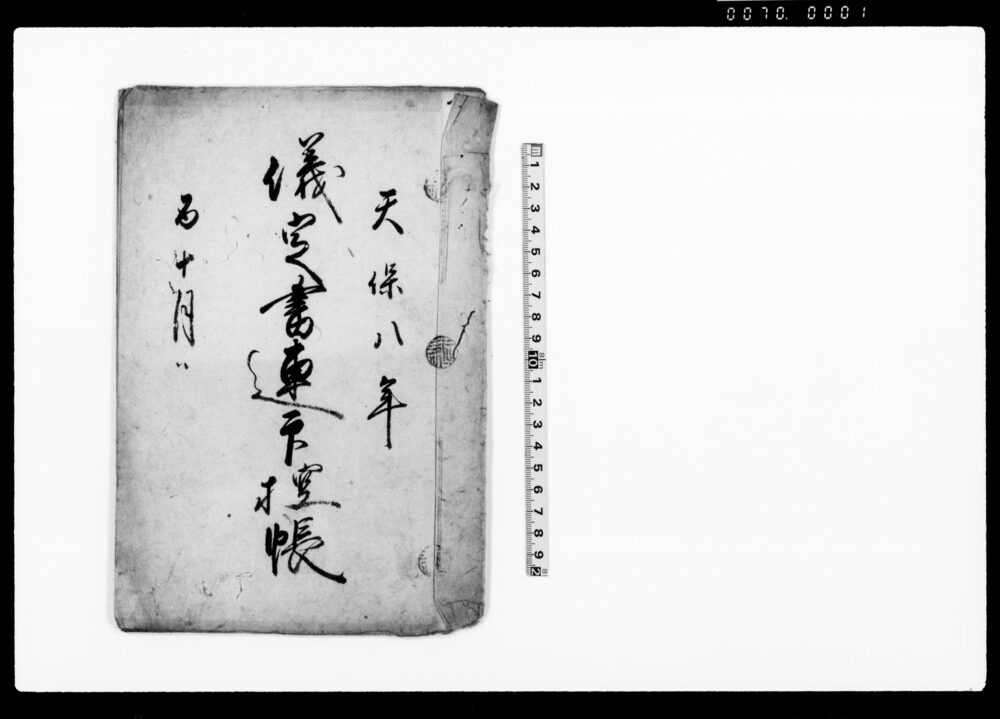 0070. 0001
天保八年
儀定書連印控帳
酉十月日
1 2 3 4 5 6 7 8 9 10 1 2 3 4 5 6 7 8 9 2